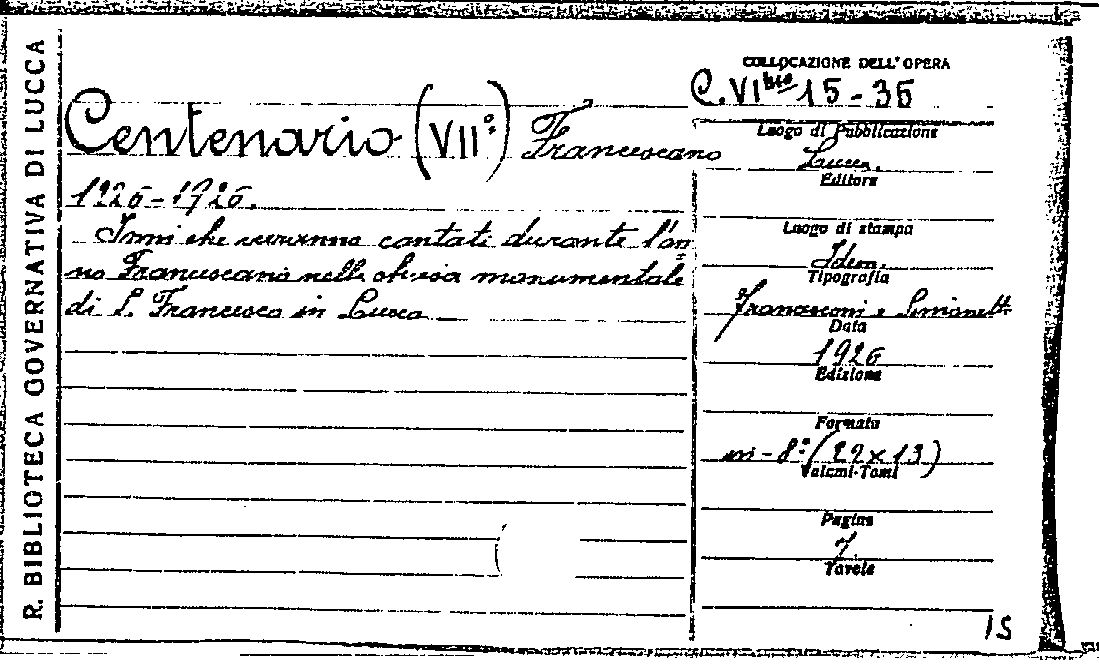 R. BIBLIOTECA GOVERNATIVA DI LUCCA
Centenario (VII°) Francescano
1226-1926.
Inni che verranno cantati durante l'an=
no Francescano nella chiesa monumentale
di S. Francesco in Lucca
COLLOCAZIONE DELL'OPERA
C. VI bis 15-35
Luogo di Pubblicazione
Lucca.
Editore
Luogo di stampa
Idem.
Tipografia
Francesconi e Simonetti
Data
1926
Edizione
Formato
in-8° (22x13)
Volumi-Tomi
Pagine
7.
Tavole
15